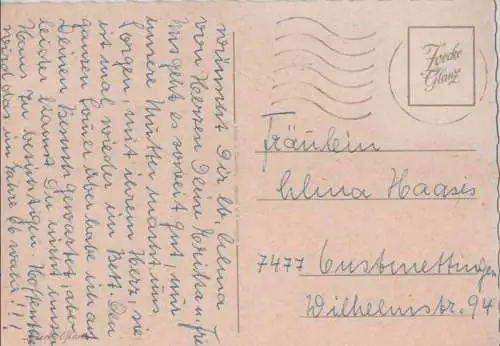 wünscht Dir lb. Alma
von Herzen Deine Erika u.
Uns geht es soweit gut, nur
unsere Mutter macht uns
Sorgen mit ihrem Herz, sie
ist mal wieder im Bett. Den
ganzen Sommer über habe ich auf
Deinen Besuch gewartet, aber
leider kamst Du nicht unser
Haus zu besichtigen. Hoffentlich
wird das im Jahre 66 wahr!!!
Glanz
Fräulein
Alma Haasis
7477 Onstmettingen
Wilhelmstr. 94